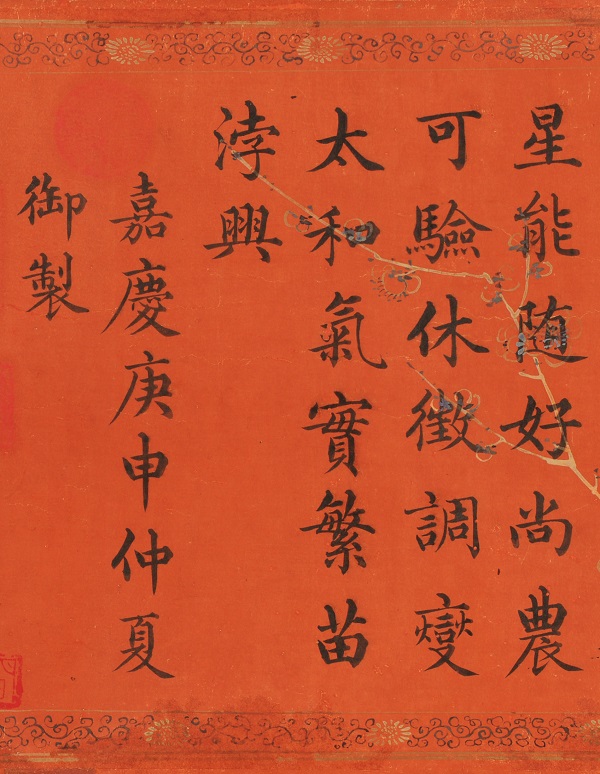 星能随好尚農
可驗休徴調燮
太和氣實繁苗
浡興
嘉慶庚申仲夏
御製